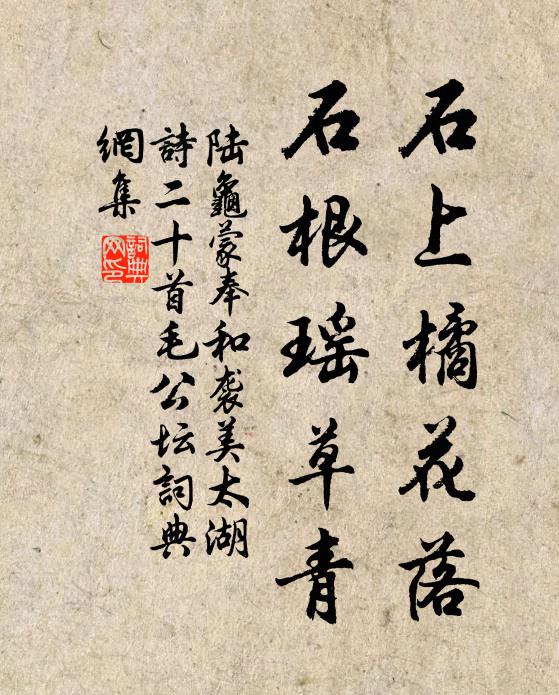 石上橘花落
石根瑶草青
陆龜蒙奉和袭美太湖
詩二十首毛公坛詞典
網集
詞典网印